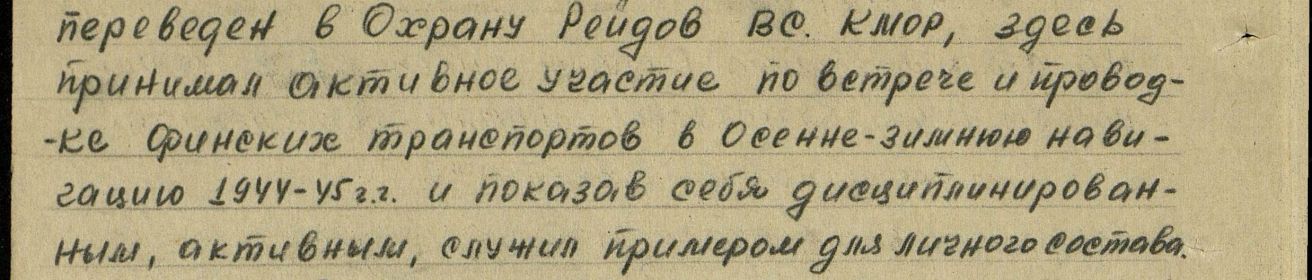 переведен в Охрану Рейдов ВС. КМОР, здесь
принимал активное участие по встрече и провод-
-ке финских транспортов в Осенне-зимнюю нави-
гацию 1944-45 г.г. и показав себя дисциплинирован-
ным, активным, служил примером для личного состава.